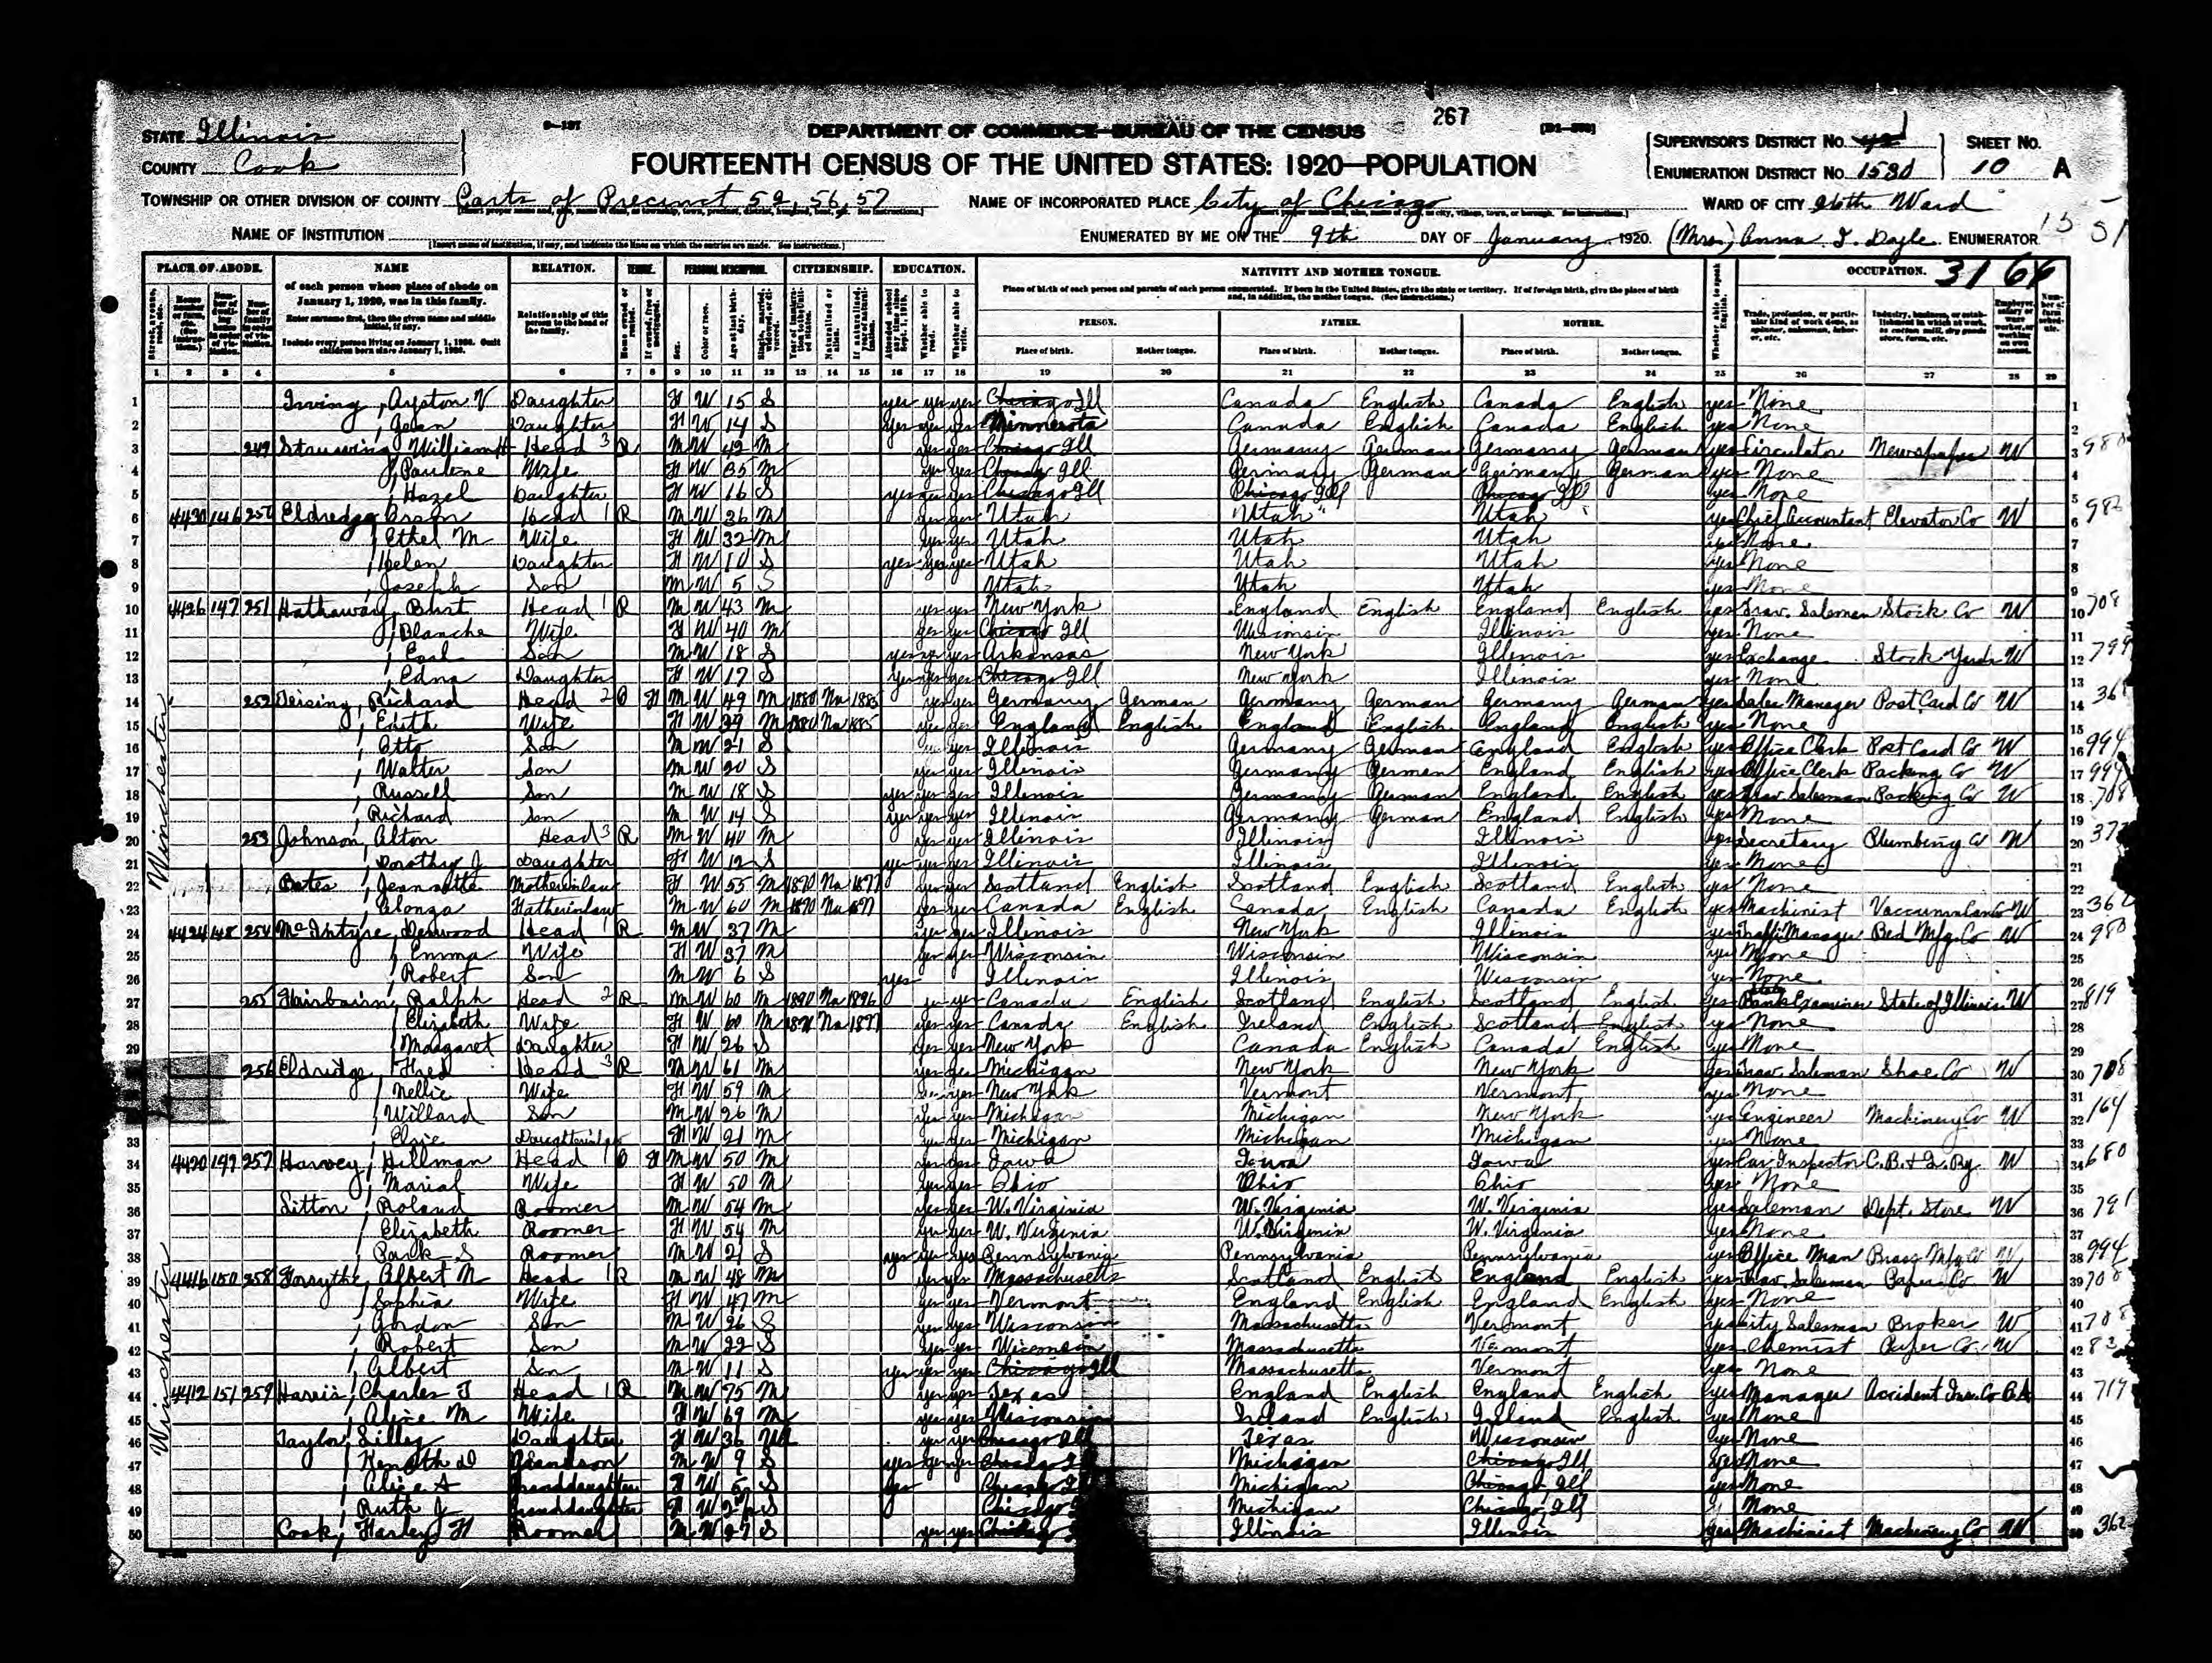 267
9-137
DEPARTMENT OF COMMERCE—BUREAU OF THE CENSUS
[D1-578]
FOURTEENTH CENSUS OF THE UNITED STATES: 1920—POPULATION
STATE Illinois
COUNTY Cook
SUPERVISOR'S DISTRICT No. 1
ENUMERATION DISTRICT No. 1530
SHEET No. 10 A
TOWNSHIP OR OTHER DIVISION OF COUNTY Parts of Precinct 52, 56, 57
NAME OF INCORPORATED PLACE City of Chicago
WARD OF CITY 26th Ward
NAME OF INSTITUTION
ENUMERATED BY ME ON THE 9th DAY OF January, 1920. (Mrs) Anna J. Doyle ENUMERATOR
3166
PLACE OF ABODE. NAME RELATION. TENURE. PERSONAL DESCRIPTION. CITIZENSHIP. EDUCATION. NATIVITY AND MOTHER TONGUE. OCCUPATION.
of each person whose place of abode on January 1, 1920, was in this family.
Enter surname first, then the given name and middle initial, if any.
Include every person living on January 1, 1920. Omit children born since January 1, 1920.
Relationship of this person to the head of the family.
Place of birth of each person and parents of each person enumerated. If born in the United States, give the state or territory. If of foreign birth, give the place of birth and, in addition, the mother tongue. (See instructions.)
PERSON. FATHER. MOTHER.
Place of birth. Mother tongue. Place of birth. Mother tongue. Place of birth. Mother tongue.
1 2 3 4 5 6 7 8 9 10 11 12 13 14 15 16 17 18 19 20 21 22 23 24 25 26 27 28 29
Winchester
1 Irving, V Daughter F W 15 S yes yes yes Chicago Ill Canada English Canada English yes None 1
2 , Jean Daughter F W 14 S yes yes yes Minnesota Canada English Canada English yes None 2
3 249 William H Head 3 R M W 42 M yes yes Chicago Ill Germany German Germany German yes Circulator Newspaper W 3
4 , Pauline Wife F W 35 M yes yes Chicago Ill Germany German Germany German yes None 4
5 , Hazel Daughter F W 16 S yes yes yes Chicago Ill Chicago Ill Chicago Ill yes None 5
6 4430 146 250 Eldredge, Orson Head 1 R M W 36 M yes yes Utah Utah Utah yes Chief Accountant Elevator Co W 6 982
7 , Ethel M Wife F W 32 M yes yes Utah Utah Utah yes None 7
8 , Helen Daughter F W 10 S yes yes yes Utah Utah Utah yes None 8
9 , Joseph Son M W 5 S Utah Utah Utah yes None 9
10 4426 147 251 Hathaway, Burt Head 1 R M W 43 M yes yes New York England English England English yes Trav. Salesman Stock Co W 10 708
11 , Blanche Wife F W 40 M yes yes Chicago Ill Wisconsin Illinois yes None 11
12 , Earl Son M W 18 S yes yes yes Arkansas New York Illinois yes Exchange Stock Yards W 12 799
13 , Edna Daughter F W 17 S yes yes yes Chicago Ill New York Illinois yes None 13
14 252 Deising, Richard Head 2 O M W 49 M 1880 Na 1885 yes yes Germany German Germany German Germany German yes Sales Manager Post Card Co W 14
15 , Edith Wife F W 39 M 1880 Na 1885 yes yes England English England English England English yes None 15
16 , Otto Son M W 21 S yes yes Illinois Germany German England English yes Office Clerk Post Card Co W 16 994
17 , Walter Son M W 20 S yes yes Illinois Germany German England English yes Office Clerk Packing Co W 17 994
18 , Russell Son M W 18 S yes yes yes Illinois Germany German England English yes Trav. Salesman Packing Co W 18 708
19 , Richard Son M W 14 S yes yes yes Illinois Germany German England English yes None 19
20 253 Johnson, Alton Head 3 R M W 40 M yes yes Illinois Illinois Illinois yes Secretary Plumbing Co W 20
21 , Dorothy J Daughter F W 12 S yes yes yes Illinois Illinois Illinois yes None 21
22 Bates, Jeannette Motherinlaw F W 55 M 1870 Na 1877 yes yes Scotland English Scotland English Scotland English yes None 22
23 , Alonzo Fatherinlaw M W 60 M 1870 Na 1877 yes yes Canada English Canada English Canada English yes Machinist W 23 362
24 4424 148 254 McIntyre, Derwood Head 1 R M W 37 M yes yes Illinois New York Illinois yes Traffic Manager Bed Mfg. Co W 24 980
25 , Emma Wife F W 37 M yes yes Wisconsin Wisconsin Wisconsin yes None 25
26 , Robert Son M W 6 S yes Illinois Illinois Wisconsin yes None 26
27 255 Fairbairn, Ralph Head 2 R M W 60 M 1890 Na 1896 yes yes Canada English Scotland English Scotland English yes State Bank Examiner State of Illinois W 27 819
28 , Elizabeth Wife F W 60 M 1871 Na 1877 yes yes Canada English Ireland English Scotland English yes None 28
29 , Margaret Daughter F W 26 S yes yes New York Canada English Canada English yes None 29
256 Eldridge, Fred Head 3 R M W 61 M yes yes Michigan New York New York yes Trav. Salesman Shoe Co W 30 708
, Nellie Wife F W 59 M yes yes New York Vermont Vermont yes None 31
, Willard Son M W 26 M yes yes Michigan Michigan New York yes Engineer Machinery Co W 32 164
33 , Elsie Daughterinlaw F W 21 M yes yes Michigan Michigan Michigan yes None 33
34 4420 149 257 Harvey, Hillman Head 1 O M W 50 M yes yes Iowa Iowa Iowa yes Car Inspector C.B.&Q. Ry. W 34 680
35 , Marial Wife F W 50 M yes yes Ohio Ohio Ohio yes None 35
36 Sitton, Roland Roomer M W 54 M yes yes W. Virginia W. Virginia W. Virginia yes Salesman Dept. Store W 36 791
37 , Elizabeth Roomer F W 54 M yes yes W. Virginia W. Virginia W. Virginia yes None 37
38 , Park S Roomer M W 21 S yes yes yes Pennsylvania Pennsylvania Pennsylvania yes Office Man Brass Mfg Co W 38 994
Winchester
39 4416 150 258 Forsythe, Albert M Head 1 R M W 48 M yes yes Massachusetts Scotland English England English yes Trav. Salesman Paper Co W 39 708
40 , Sophia Wife F W 47 M yes yes Vermont England English England English yes None 40
41 , Gordon Son M W 26 S yes yes Wisconsin Massachusetts Vermont yes City Salesman Broker W 41 708
42 , Robert Son M W 22 S yes yes Wisconsin Massachusetts Vermont yes Chemist Paper Co. W 42
43 , Albert Son M W 11 S yes yes yes Chicago Ill Massachusetts Vermont yes None 43
44 4412 151 259 Harris, Charles T Head 1 R M W 75 M yes yes Texas England English England English yes Manager Accident Ins. Co 44
45 , Alice M Wife F W 69 M yes yes Wisconsin Ireland English Ireland English yes None 45
46 Taylor, Lilley Daughter F W 36 yes yes Chicago Ill Texas Wisconsin yes None 46
47 , Kenneth D Grandson M W 9 S yes yes yes Chicago Ill Michigan Chicago Ill yes None 47
48 , Alice A Granddaughter F W 5 S yes Chicago Ill Michigan Chicago Ill yes None 48
49 , Ruth J Granddaughter F W S Chicago Michigan Chicago, Ill None 49
50 Cook, Harley H Roomer M W 27 S yes yes Chicago Illinois Illinois yes Machinist Machinery Co W 50 362